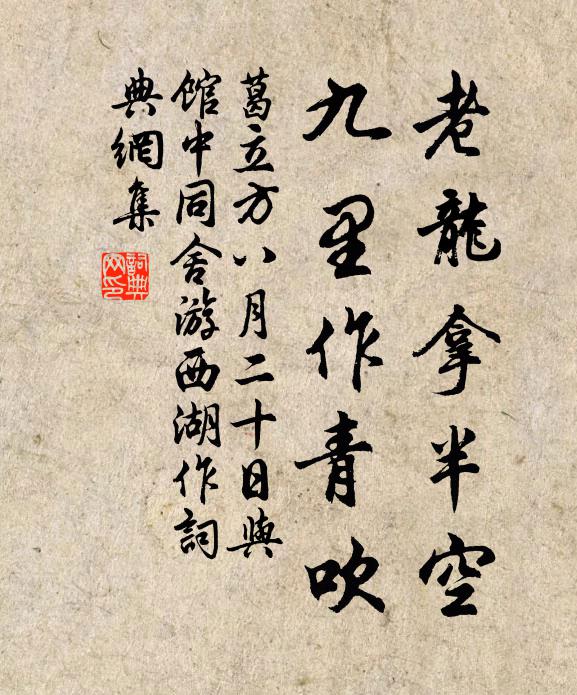 老龍拿半空
九里作青吹
葛立方八月二十日與
館中同舍游西湖作詞
典網集
詞典
网印